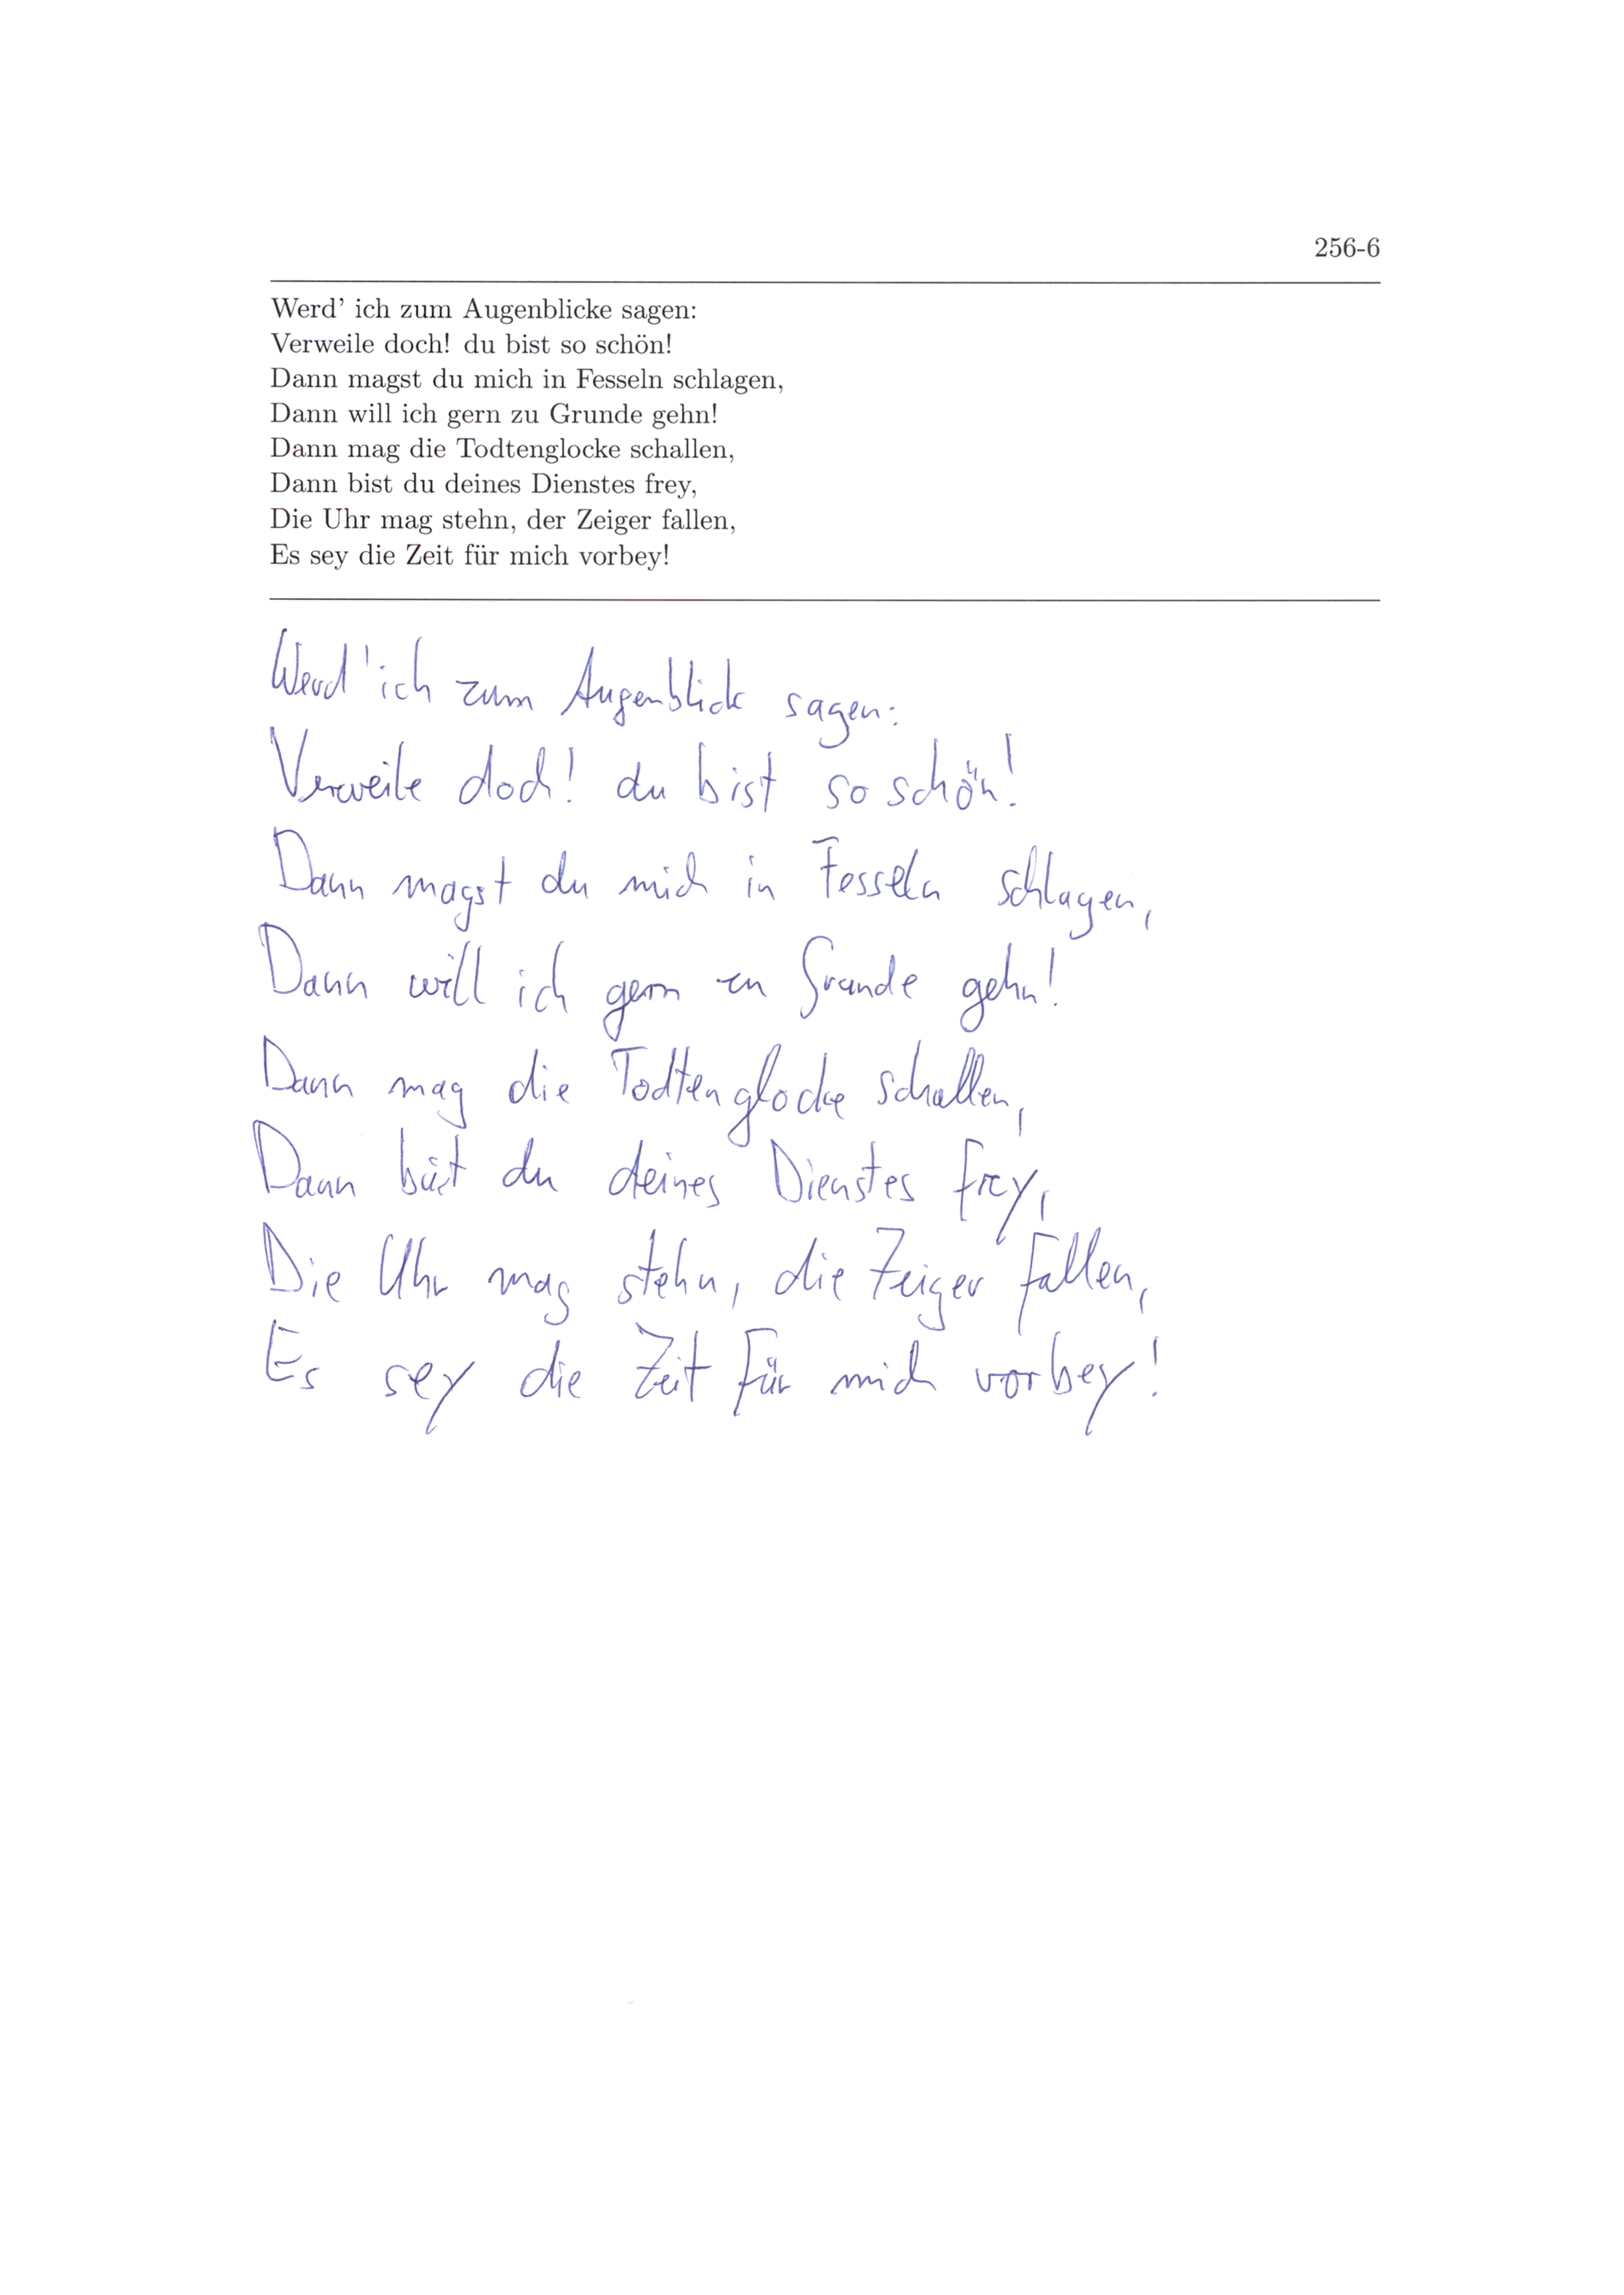 256-6
Werd' ich zum Augenblicke sagen:
Verweile doch! du bist so schön!
Dann magst du mich in Fesseln schlagen,
Dann will ich gern zu Grunde gehn!
Dann mag die Todtenglocke schallen,
Dann bist du deines Dienstes frey,
Die Uhr mag stehn, der Zeiger fallen,
Es sey die Zeit für mich vorbey!
Werd' ich zum Augenblick sagen:
Verweile doch! du bist so schön!
Dann magst du mich in Fesseln schlagen,
Dann will ich gern zu Grunde gehn!
Dann mag die Todtenglocke schallen,
Dann bist du deines Dienstes frey,
Die Uhr mag stehn, die Zeiger fallen,
Es sey die Zeit für mich vorbey!